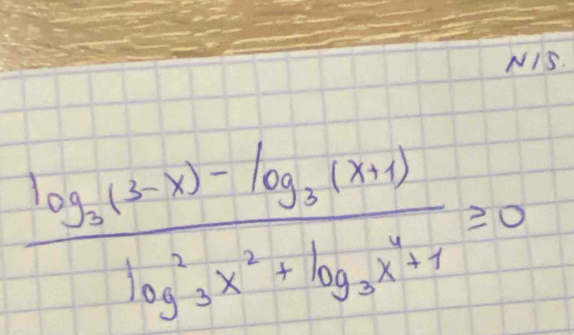 N15.
log₃(3-x) - log₃(x+1)
≥ 0
log²₃x² + log₃x⁴ + 1